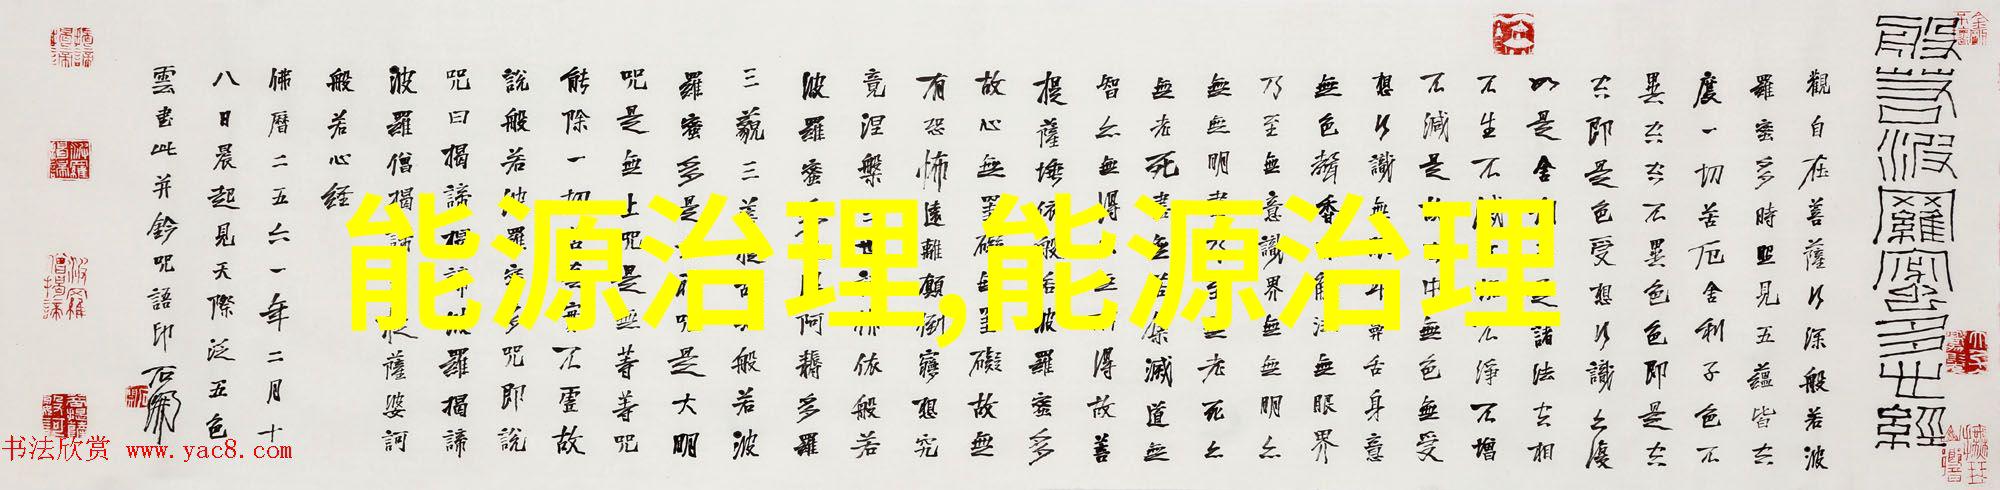 般若波羅蜜多心經
觀自在菩薩行深般若波
羅蜜多時照見五蘊皆空
度一切苦厄舍利子色不
異空空不異色色即是空
空即是色受想行識亦復
如是舍利子是諸法空相
不生不滅不垢不淨不增
不減是故空中無色無受
想行識無眼耳鼻舌身意
無色聲香味觸法無眼界
乃至無意識界無無明亦
無無明盡乃至無老死亦
無老死盡無苦集滅道無
智亦無得以無所得故菩
提薩埵依般若波羅蜜多
故心無罣礙無罣礙故無
有恐怖遠離顛倒夢想究
竟涅槃三世諸佛依般若
波羅蜜多故得阿耨多羅
三藐三菩提故知般若波
羅蜜多是大神咒是大明
咒是無上咒是無等等咒
能除一切苦真實不虛故
說般若波羅蜜多咒即說
咒曰揭諦揭諦波羅揭諦
波羅僧揭諦菩提薩婆訶
般若心経
佛曆二五六一年二月十
八日晨起見天際泛五色
雲書此并鈐咒語印 石開
能源治理,能源治理
书法欣赏 www.yac8.com